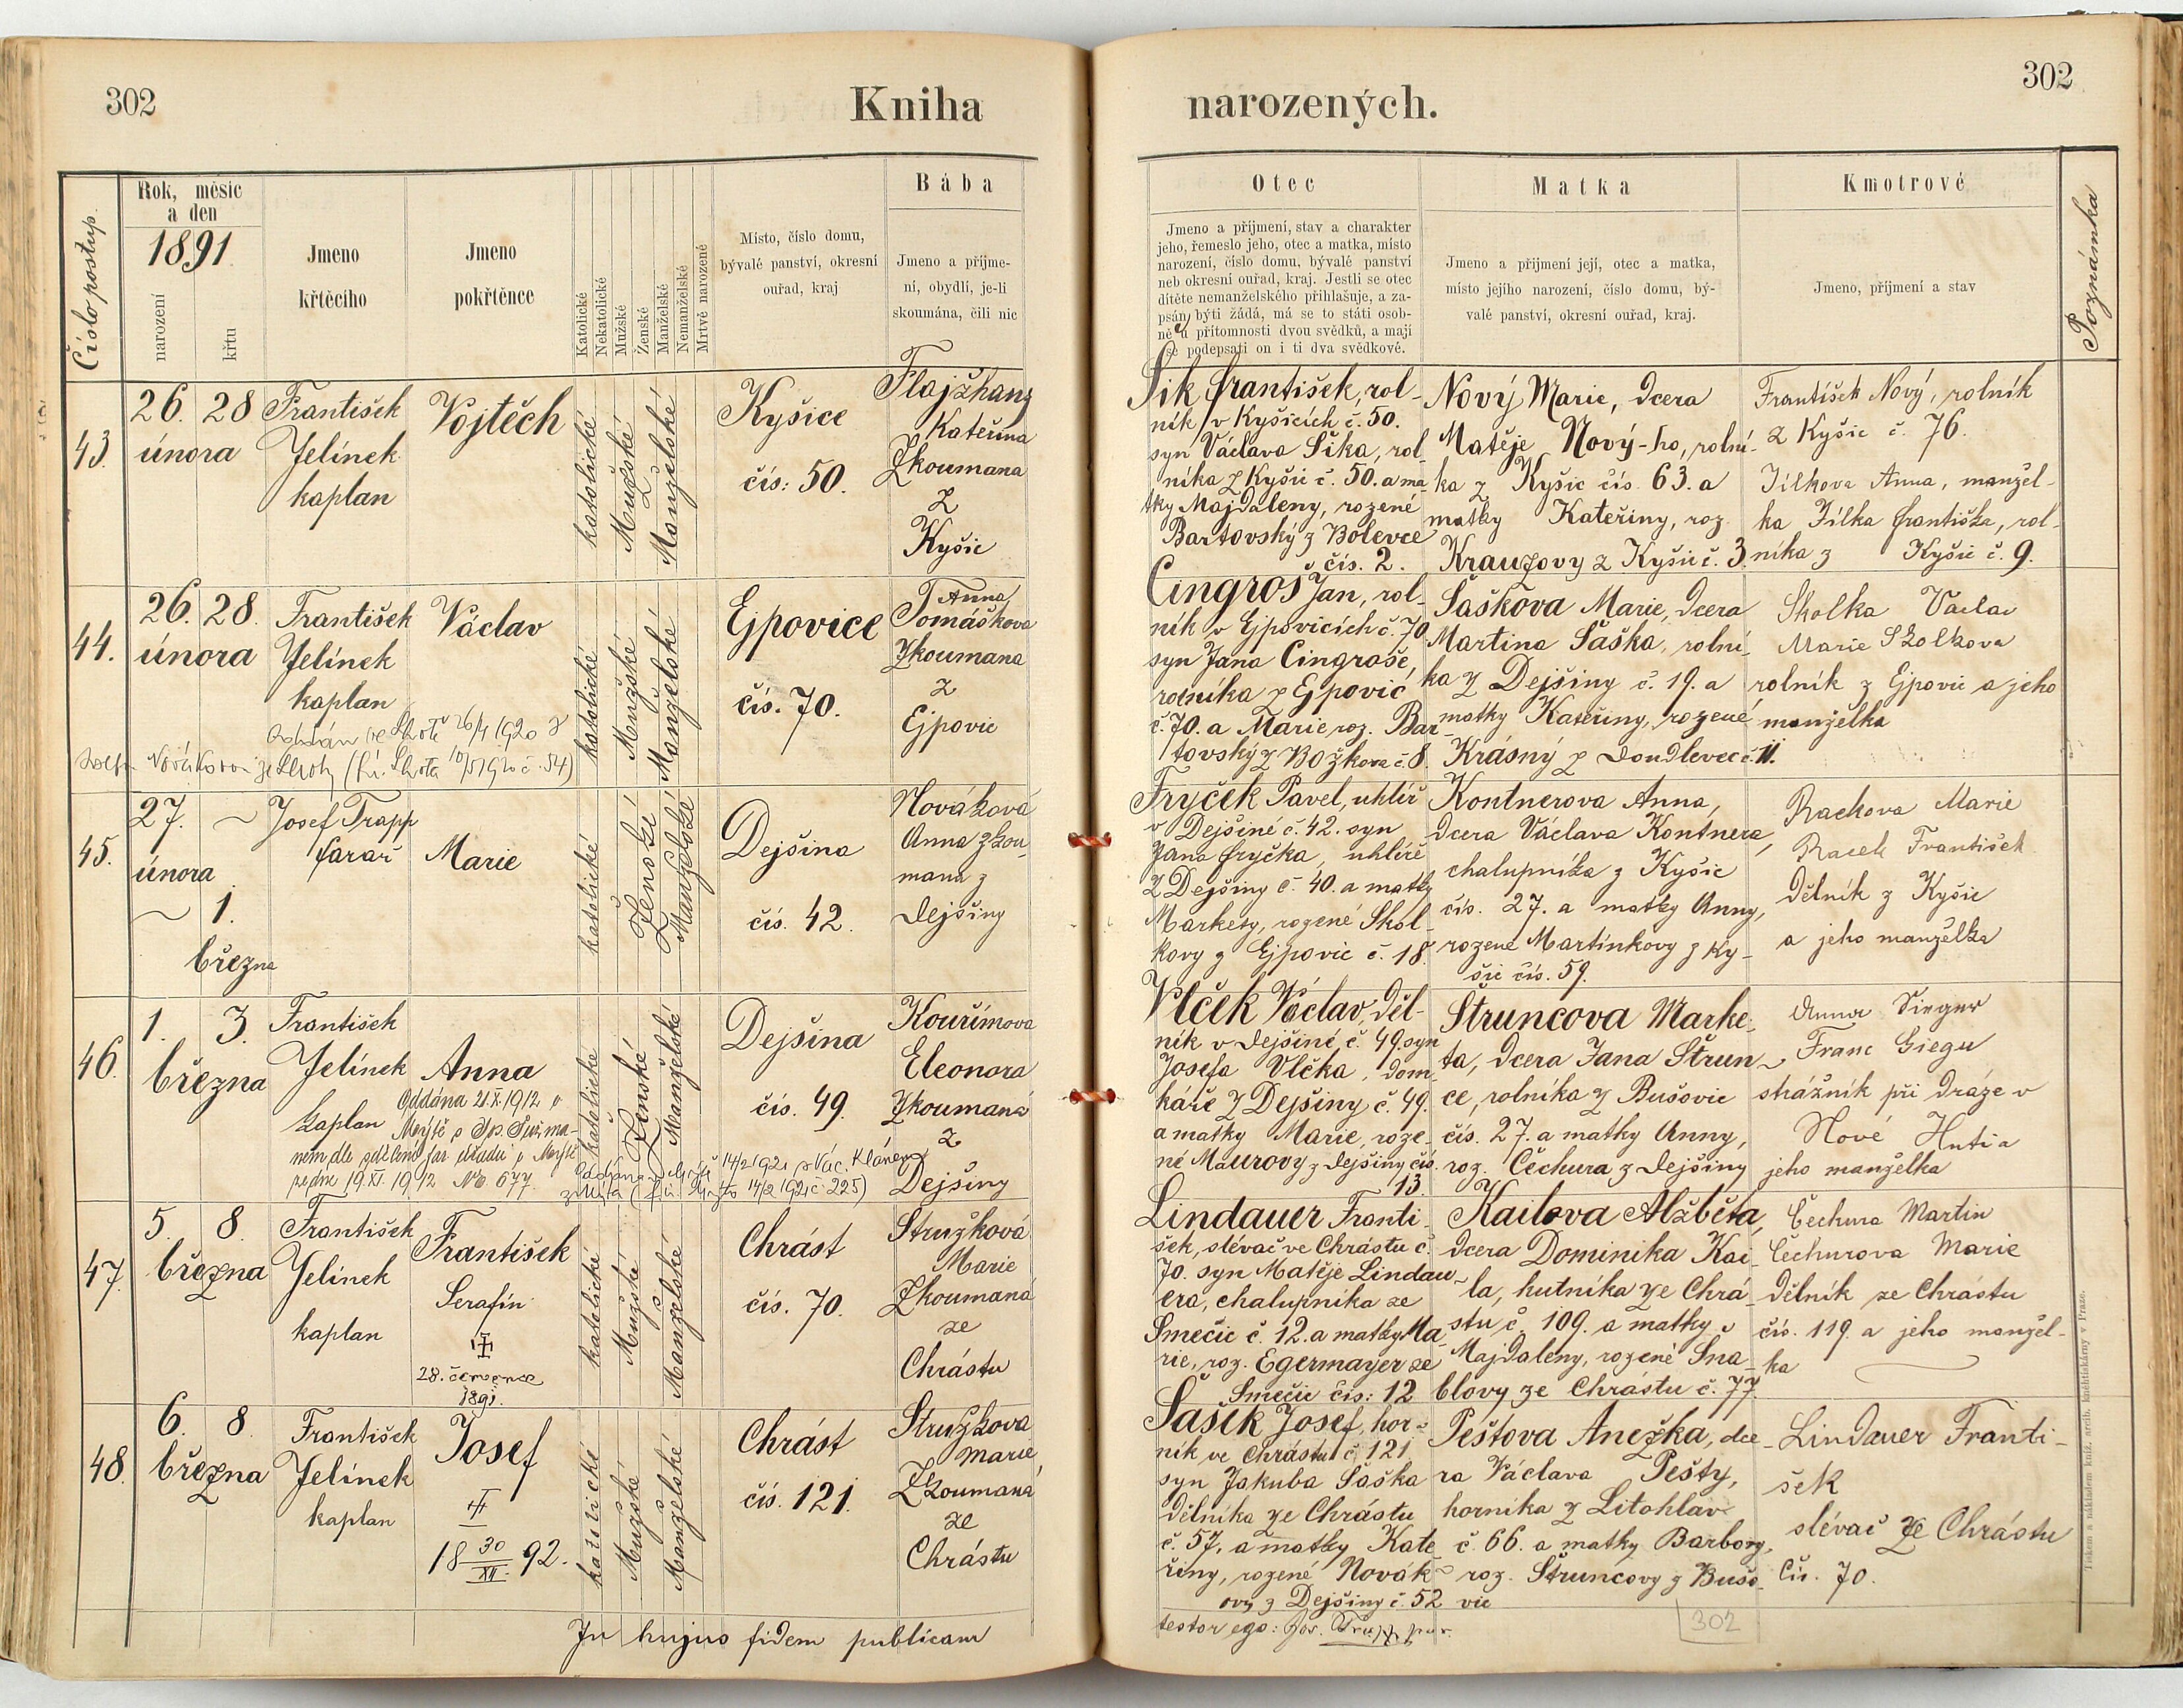 302
Kniha
narozených.
302
Číslo postup.
Rok, měsíc
a den
1891
narození
křtu
Jmeno
křtěcího
Jmeno
pokřtěnce
Katolické
Nekatolické
Mužské
Ženské
Manželské
Nemanželské
Mrtvě narozené
Místo, číslo domu,
bývalé panství, okresní
ouřad, kraj
Bába
Jmeno a příjme-
ní, obydlí, je-li
skoumána, čili nic
Otec
Jmeno a příjmení, stav a charakter
jeho, řemeslo jeho, otec a matka, místo
narození, číslo domu, bývalé panství
neb okresní ouřad, kraj. Jestli se otec
dítěte nemanželského přihlašuje, a za-
psán býti žádá, má se to státi osob-
ně u přítomnosti dvou svědků, a mají
se podepsati on i ti dva svědkové.
Matka
Jmeno a příjmení její, otec a matka,
místo jejího narození, číslo domu, bý-
valé panství, okresní ouřad, kraj.
Kmotrové
Jmeno, příjmení a stav
Poznámka
43.
26. 28
února
František
Jelínek
kaplan
Vojtěch
katolické
Mužské
Manželské
Kyšice
čís: 50.
Flajžhanz
Kateřina
Zkoumana
z
Kyšic
Šik František, rol-
ník v Kyšicích č. 50.
syn Václava Šika, rol-
níka z Kyšic č. 50. a ma-
tky Majdaleny, rozené
Bartovský z Bolevce
čís. 2.
Nový Marie, dcera
Matěje Nový-ho, rolní-
ka z Kyšic čís. 63. a
matky Kateřiny, roz.
Krauzovy z Kyšic č. 3.
František Nový, rolník
z Kyšic č. 76.
Jílkova Anna, manžel-
ka Jílka Františka, rol-
níka z Kyšic č. 9.
44.
26. 28.
února
František
Jelínek
kaplan
Václav
katolické
Mužské
Manželské
Ejpovice
čís. 70.
Anna
Tomášková
Zkoumana
z
Ejpovic
Cingroš Jan, rol-
ník v Ejpovicích č. 70
syn Jana Cingroše,
rolníka z Ejpovic
č. 70. a Marie roz. Bar-
tovský z Božkova č. 8.
Šaškova Marie, dcera
Martina Šaška, rolní-
ka z Dejšiny č. 19. a
matky Kateřiny, rozené
Krásný z Doudlevec č. 11.
Skolka Václav
Marie Skolkova
rolník z Ejpovic a jeho
manželka
45.
27. ~
února
~ 1.
března
Josef Trapp
farař
Marie
katolické
Ženské
Manželské
Dejšina
čís. 42.
Nováková
Anna zkou-
mana z
Dejšiny
Fryček Pavel, uhlíř
v Dejšině č. 42. syn
Jana Fryčka, uhlíře
z Dejšiny č. 40. a matky
Markety, rozené Skol-
kovy z Ejpovic č. 18.
Kontnerova Anna,
dcera Václava Kontnera,
chalupníka z Kyšic
čís. 27. a matky Anny,
rozené Martinkovy z Ky-
šic čís. 59.
Rackova Marie
Racek František
dělník z Kyšic
a jeho manželka
46.
1. 3.
března
František
Jelínek
kaplan
Anna
Oddána 21.X.1912 v
katolické
Ženské
Manželské
Dejšina
čís. 49.
Kouřimova
Eleonora
Zkoumaná
z
Dejšiny
Vlček Václav, děl-
ník v Dejšině č. 49. syn
Josefa Vlčka, dom-
káře z Dejšiny č. 49.
a matky Marie, roze-
né Maurovy z Dejšiny čís.
13.
Štruncova Marke-
ta, dcera Jana Štrun-
ce, rolníka z Bušovic
čís. 27. a matky Anny,
roz. Čechura z Dejšiny
Franc
strážník při dráze v
Nové Huti a
jeho manželka
47.
5. 8.
března
František
Jelínek
kaplan
František
Serafín
28. července
1891.
katolické
Mužské
Manželské
Chrást
čís. 70.
Stružková
Marie
Zkoumaná
ze
Chrástu
Lindauer Franti-
šek, slévač ve Chrástu č.
70. syn Matěje Lindau-
era, chalupníka ze
Smečic č. 12. a matky Ma-
rie, roz. Egermayer ze
Smečic čís: 12
Kailova Alžběta,
dcera Dominika Kai-
la, hutníka ze Chrá-
stu č. 109. a matky
Majdaleny, rozené Šna-
blovy ze Chrástu č. 77.
Čechura Martin
Čechurova Marie
dělník ze Chrástu
čís. 119. a jeho manžel-
ka
48.
6. 8.
března
František
Jelínek
kaplan
Josef
18 30/XII. 92.
katolické
Mužské
Manželské
Chrást
čís. 121.
Stružkova
Marie,
Zkoumaná
ze
Chrástu
Šašek Josef, hor-
ník ve Chrástu č. 121
syn Jakuba Šaška
dělníka ze Chrástu
č. 57. a matky Kate-
řiny, rozené Novák-
ovy z Dejšiny č. 52
Peštova Anežka, dce-
ra Václava Pešty,
horníka z Litohlav
č. 66. a matky Barbory,
roz. Štruncovy z Bušo-
vic
Lindauer Franti-
šek
slévač ze Chrástu
čís. 70.
In hujus fidem publicam
testor ego: Jos. Trapp, par.
302